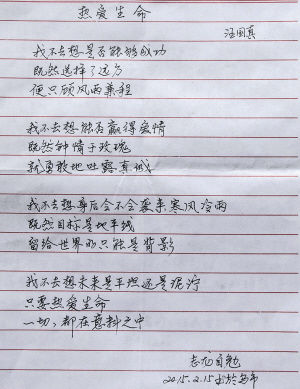 热爱生命
汪国真
我不去想是否能够成功
既然选择了远方
便只顾风雨兼程
我不去想能否赢得爱情
既然钟情于玫瑰
就勇敢地吐露真诚
我不去想身后会不会袭来寒风冷雨
既然目标是地平线
留给世界的只能是背影
我不去想未来是平坦还是泥泞
只要热爱生命
一切,都在意料之中
志龙自勉
2015.2.15书于